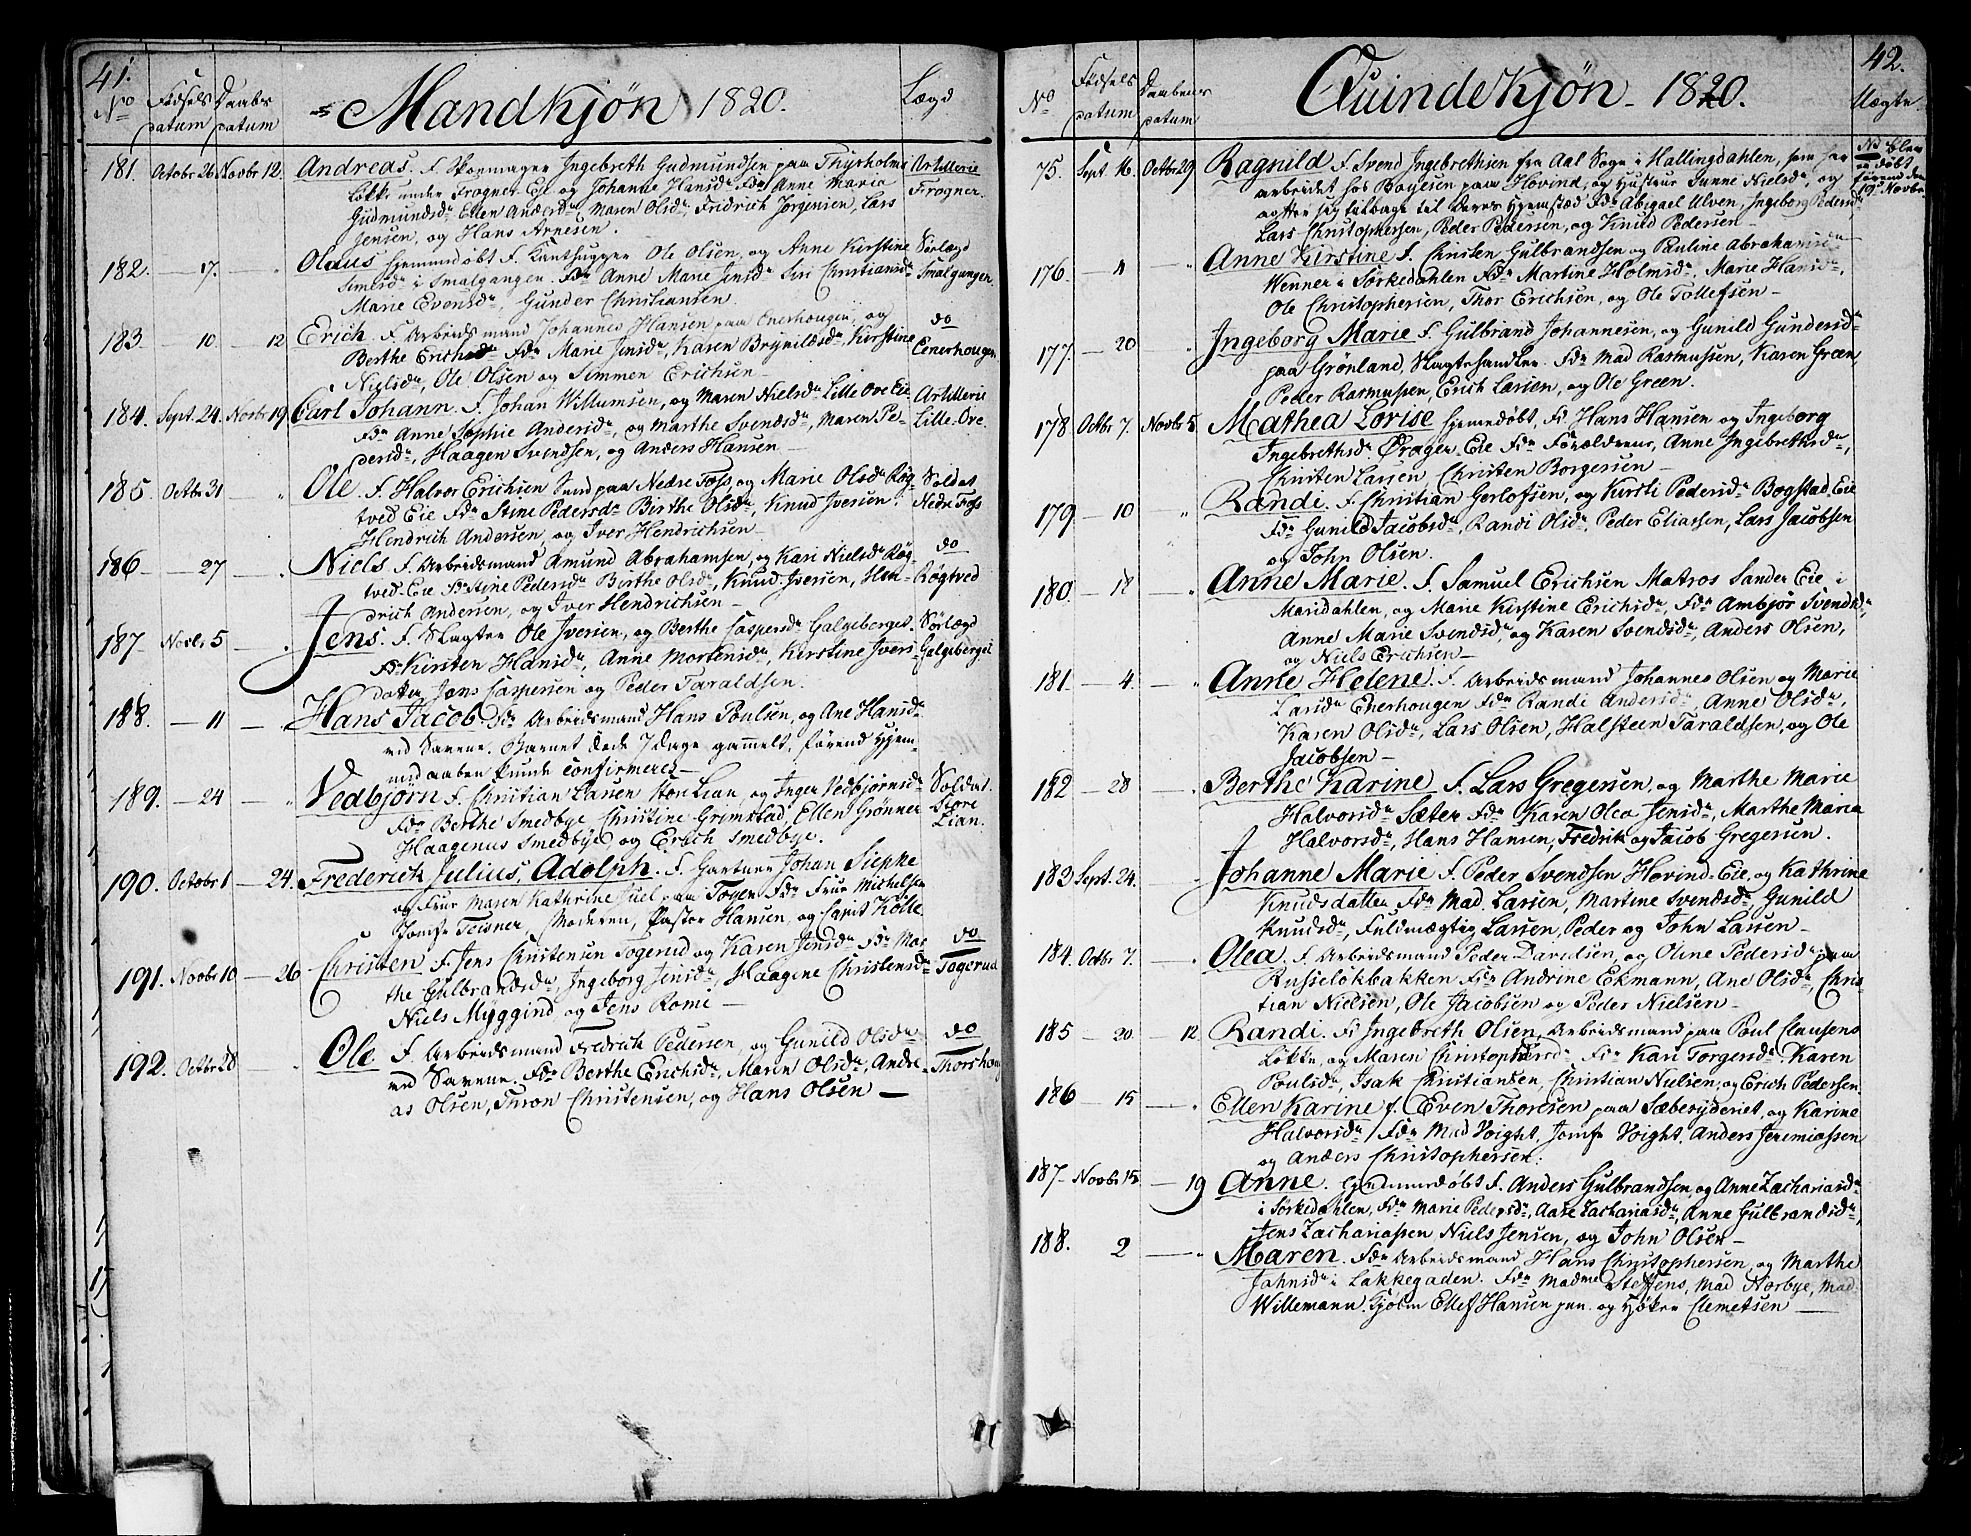 41.
No
Fødsels
datum
Daabs
datum
Mandkjøn 1820.
Lægd
181. Octobr 26 Novbr 12. Andreas. F. Skoemager Ingebreth Gudmundsen paa Thyrholms Artillerie
Løkke under Frogner Eie og Johanne Hansdr Fdr Anne Maria Frogner.
Gudmundsdr Ellen Andersdr Maren Olsdr, Fridrich Jørgensen, Lars
Jensen, og Hans Arnesen.
182. — 17. — Olaus hjemmedøbt F. Ole Olsen, og Anne Kirstine Sørlægd
Simesdr i Smalgangen. Fdr Anne Marie Jensdr Siri Christiansdr Smalgangen
Marie Evensdr, Gunder Christiansen.
183 — 10 — 12 Erich. F. Arbeidsmand Johannes Hansen paa Enerhougen, og do
Berthe Erichsdr Fdr Marie Jensdr, Karen Brynildsdr, Kirstine Eenerhougen
Nielsdr, Ole Olsen og Simmen Erichsen —
184. Sept. 24. Novbr 19 Carl Johann. F. Johan Willumsen, og Maren Nielsdr Lille Ove Eie Artillerie
Fdr Anne Sophie Andersdr, og Marthe Svendsdr, Maren Pe- Lille-Ove
dersdr, Haagen Svendsen, og Anders Hansen —
185. Octbr 31 — " Ole. F. Halvor Erichsen Smed paa Nedre Foss, og Marie Olsdr Røg- Soldat
tved Eie Fdr Stine Pedersdr Birthe Olsdr, Knud Iversen. Nedre Foss
Hendrich Andersen, og Iver Hendrichsen —
186 — 27 — . Niels F. Arbeidsmand Amund Abrahamsen, og Kari Nielsdr Røg- do
tved-Eie Fdr Stine Pedersdr Berthe Olsdr, Knud Iversen, Hen- Røgtved
drich Andersen, og Iver Hendrichsen —
187 Novbr 5 — . Jens. F. Slagter Ole Iversen, og Berthe Caspersdr Galgeberget. Sørlægd
Fdr Kirsten Hansdr, Anne Mortensdr, Kirstine Ivers- Galgeberget
datter Jens Caspersen og Peder Taraldsen.
188. — 11 — . Hans Jacob. Fdr Arbeidsmand Hans Poulsen, og Ane Hansdr
ved Saugene. Barnet døde 7 Dage gammelt, førend Hjem-
medaaben kunde confirmeres —
189. — 24 — " Vedbjørn F. Christian Larsen Store Lian, og Inger Vedbjørnsdr Soldat
Fdr Berthe Smedbye Christine Grimstad, Ellen Grønner Store
Haagenus Smedbye, og Erich Smedbye. Lian.
190. Octobr 1 — 24. Frederich Julius, Adolph. F. Gartner Johan Siepke
og Frue Maren Kathrine Juel paa Tøyen Fdr Frue Michelsen
Jomfr Teisner, Moderen, Pastor Hansen, og Capit Kolle
191. Novbr 10 — 26 Christen F. Jens Christensen Togerud og Karen Jensdr Fdr Mar- do
the Gulbrandsdr, Ingeborg Jensdr, Haagene Christensdr Togerud
Niels Myggind og Jens Rome —
192. Octbr 28 — . Ole F. Arbeidsmand Fredrich Pedersen, og Gunild Olsdr do
ved Saugene. Fdr Berthe Erichsdr, Maren Olsdr, Andre- Thorshoug
as Olsen, Thron Christensen, og Hans Olsen —
42.
No
Fødsels
datum
Daabens
datum
Quindekjøn 1820.
Uægte
75. Sept. 16. Octbr 29 Ragnild F. Svend Ingebrethsen fra Aal Sogn i Hallingdahlen, som har No blev
arbeidet hos Boyesen paa Hovind, og Hustrue Gunne Nielsdr, og ei døbt
agter sig tilbage til deres Hjemstæd Fdr Abigael Ulven, Ingeborg Pedersdr førend den 19 Novbr
Lars Christophersen, Peder Pedersen, og Knud Pedersen —
176 — 11 " Anne Kirstine F. Christen Gulbrandsen og Pauline Abrahamsdr
Wenner i Sørkedahlen Fdr Martine Holmsdr, Marie Hansdr,
Ole Christophersen, Thor Erichsen, og Ole Tollefsen —
177. — 20 " Ingeborg Marie F. Gulbrand Johannesen, og Gunild Gundersdr
paa Grønland, Slagtehandler. Fdr Mad Rasmussen, Karen Green,
Peder Rasmussen, Erich Larsen, og Ole Green.
178 Octbr 7. Novbr 5. Mathea Lovise hjemedøbt, Fd Hans Hansen og Ingeborg
Ingebrethsdr Øragen-Eie Fdr Forældrene, Anne Ingebrethsdr,
Christen Larsen Christen Borgersen —
179 — 10 " Randi. F. Christian Gerlofsen, og Kirsti Pedersdr Bogstad Eie
Fdr Gunild Jacobsdr, Randi Olsdr Peder Eliassen, Lars Jacobsen
og John Olsen.
180. — 18 — " Anne Marie. F. Samuel Erichsen Matros Sander Eie i
Maridahlen, og Marie Kirstine Erichsdr, Fdr Ambjør Svendsdr,
Anne Marie Svendsdr, og Karen Svendsdr, Anders Olsen,
og Niels Erichsen —
181. — 4. — " Anne Helene. F. Arbeidsmand Johannes Olsen og Marie
Larsdr Enerhougen Fdr Randi Andersdr, Anne Olsdr,
Karen Olsdr, Lars Olsen, Halsteen Taraldsen, og Ole
Jacobsen —
182 — 28 — . Berthe Karine F. Lars Gregersen, og Marthe Marie
Halvorsdr Sæter Fdr Karen Olea Jensdr, Marthe Maria
Halvorsdr, Hans Hansen, Fredrik og Jacob Gregersen.
183 Sept. 24. Johanne Marie F. Peder Svendsen Hovind-Eie, og Kathrine
Knudsdatter Fdr Mad. Larsen, Martine Svendsdr, Gunild
Knudsdr, Fuldmægtig Larsen, Peder og John Larsen —
184. Octbr 7. — . Olea. F. Arbeidsmand Peder Davidsen, og Oline Pedersdr paa
Russeløkbakken Fdr Andrine Ekmann, Ane Olsdr, Chris-
tian Nielsen, Ole Jacobsen og Peder Nielsen —
185 — 20 — 12 Randi. Fd Ingebreth Olsen, Arbeidsmand paa Poul Clausens
Løkke, og Maren Christophersdr Fdr Kari Torgersdr, Karen
Poulsdr, Isak Christiansen, Christian Nielsen, og Erich Pedersen.
186 — 15 — . Ellen Karine f. Even Thoresen paa Sæbesyderiet, og Karine
Halvorsdr / Fdr Mad Voight, Jomfr Voight, Anders Jeremiassen
og Anders Christophersen.
187 — Novbr 15 — 19 Anne. hjemmedøbt F. Anders Gulbrandsen, og Anne Zachariasdr
i Sørkedahlen, Fdr Marie Pedersdr, Aase Zachariasdr, Anne Gulbrandsdr,
Jens Zachariassen Niels Jensen, og John Olsen —
188. 2 — " Maren. Fdr Arbeidsmand Hans Christophersen, og Marthe
Jahnsdr i Lakkegaden. Fdr Madme Steffens, Mad Norbye, Mad
Willemann. Ellef Hansen jun. og Høker Clemetsen —